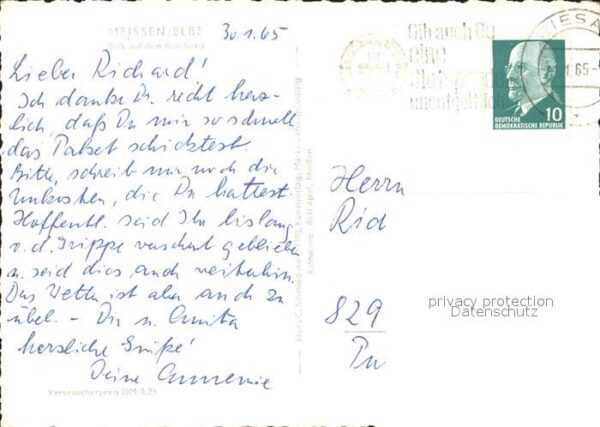 MEISSEN/ELBE
Blick auf den Burgberg
30.1.65
Lieber Richard!
Ich danke Dir recht herz-
lich, daß Du mir so schnell
das Paket schicktest.
Bitte, schreib mir noch die
Unkosten, die Du hattest.
Hoffentl. seid Ihr bislang
v. d. Grippe verschont geblieben
u. seid dies auch weiterhin.
Das Wetter ist aber auch zu
übel. – Dir u. Anita
herzliche Grüße!
Deine Annemie
Verbraucherpreis DM 0,25
Gib auch Du
eine
unentgeltlich
RIESA
65
DEUTSCHE
DEMOKRATISCHE REPUBLIK
10
Herrn
Rid
829
privacy protection
Datenschutz